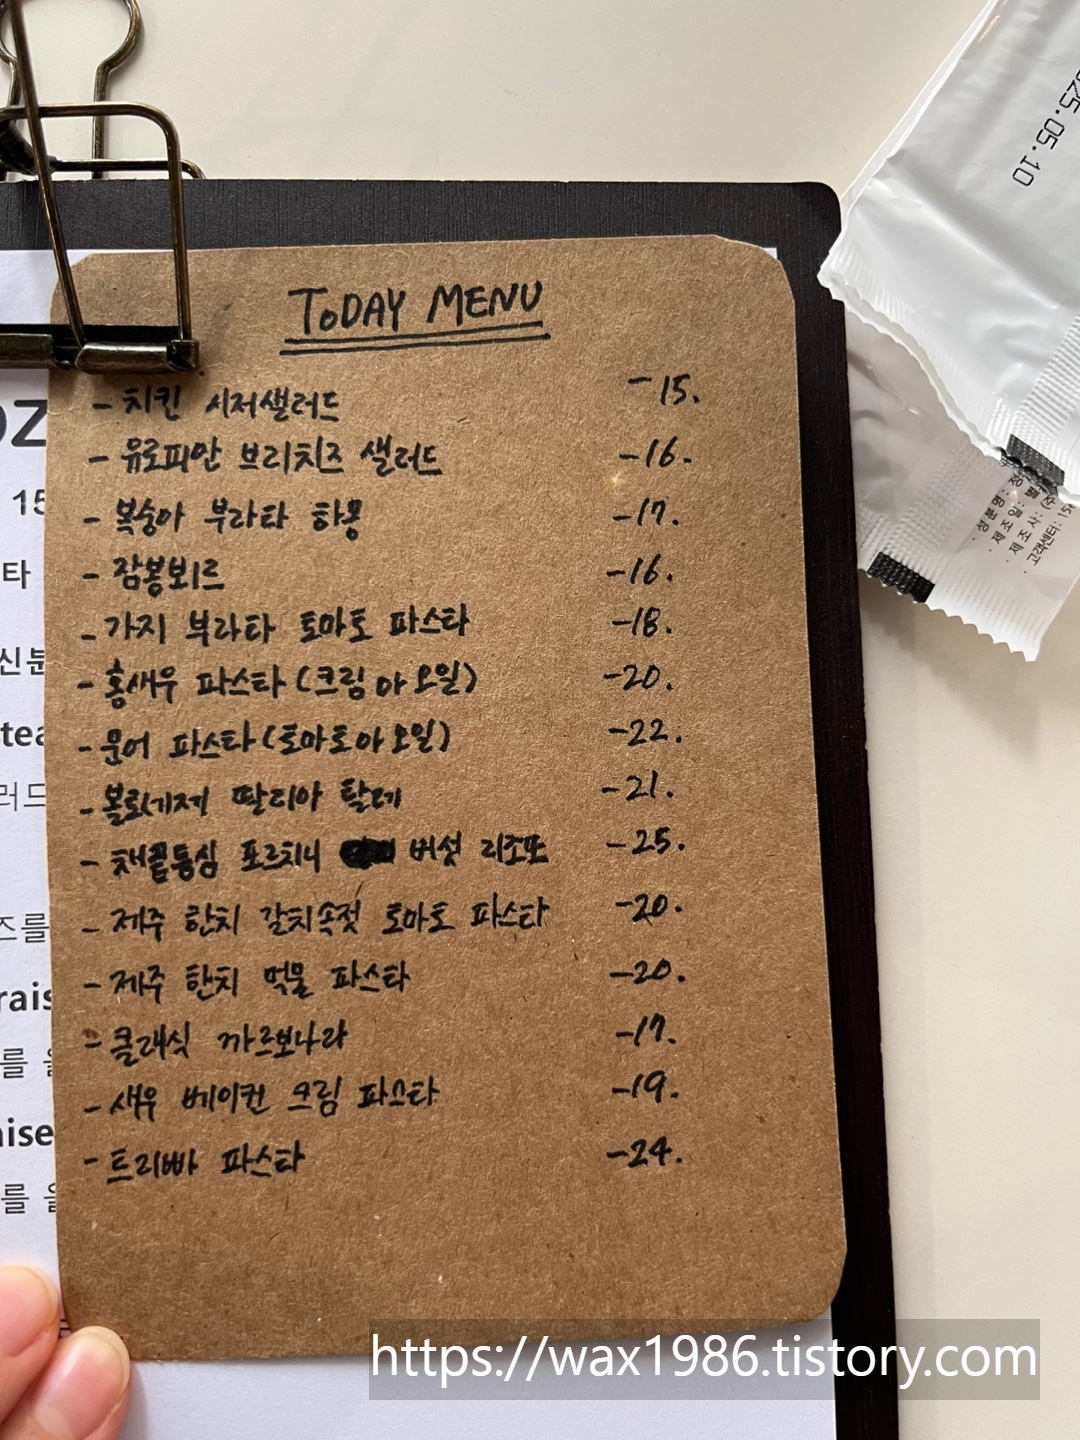 TODAY MENU
- 치킨 시저샐러드 -15.
- 유로피안 브리치즈 샐러드 -16.
- 복숭아 부라타 하몽 -17.
- 잠봉뵈르 -16.
- 가지 부라타 토마토 파스타 -18.
- 홍새우 파스타 (크림 or 오일) -20.
- 문어 파스타 (토마토 or 오일) -22.
- 볼로네제 딸리아 탈레 -21.
- 채끝등심 포르치니 버섯 리조또 -25.
- 제주 한치 갈치속젓 토마토 파스타 -20.
- 제주 한치 먹물 파스타 -20.
- 클래식 까르보나라 -17.
- 새우 베이컨 크림 파스타 -19.
- 트리빠 파스타 -24.
oz
15
타
신분
stea
러드
즈를
rais
를 을
aise
를 을
25.05.10
성분명: 정
제조일: 별
제조사: (주
고객센터: 15
https://wax1986.tistory.com